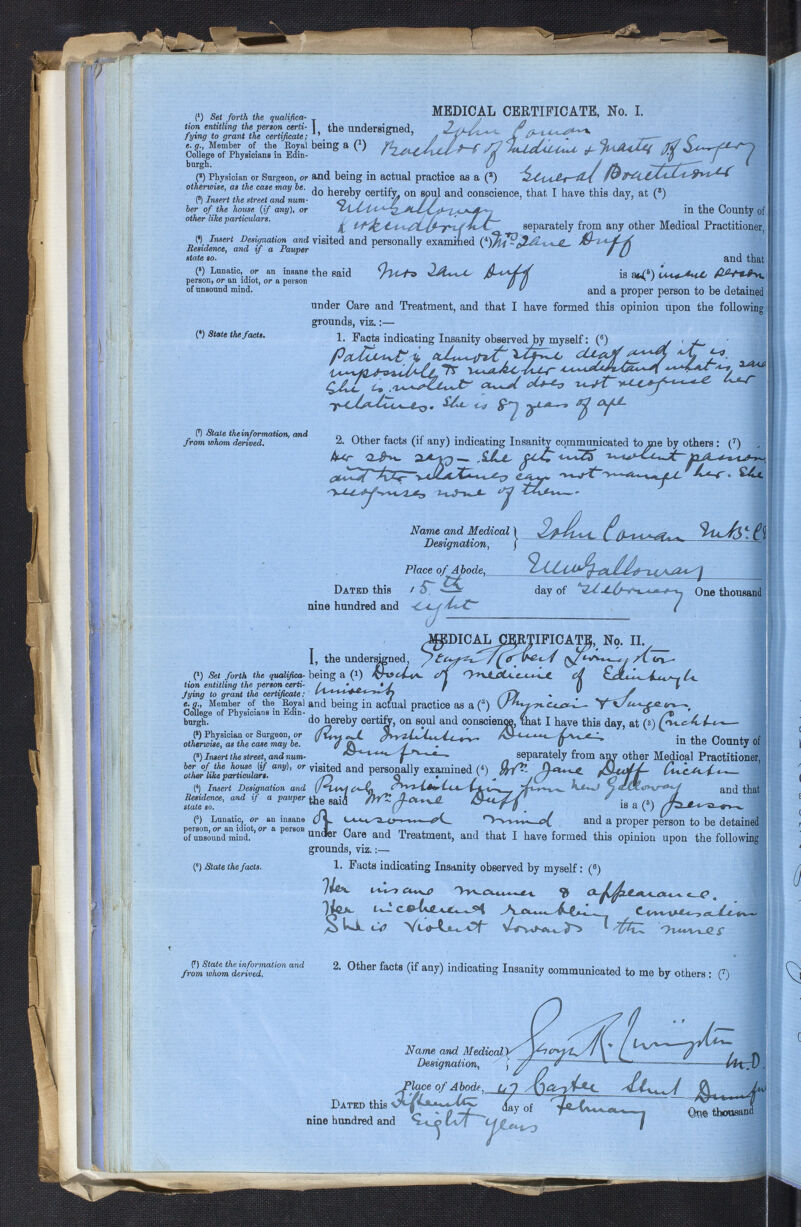 MEDICAL CERTIFICATE, No. I.
(¹) Set forth the qualifica-
tion entitling the person certi-
fying to grant the certificate;
e. g., Member of the Royal
College of Physicians in Edin-
burgh.
I, the undersigned, John Cowan
being a (¹) Bachelor of Medicine & Master of Surgery
(²) Physician or Surgeon, or
otherwise, as the case may be.
and being in actual practice as a (²) General Practitioner
(³) Insert the street and num-
ber of the house (if any), or
other like particulars.
do hereby certify, on soul and conscience, that I have this day, at (³)
New Galloway in the County of
Kirkcudbright separately from any other Medical Practitioner,
(⁴) Insert Designation and
Residence, and if a Pauper
state so.
visited and personally examined (⁴) Mrs Jane Duff
and that
(⁵) Lunatic, or an insane
person, or an idiot, or a person
of unsound mind.
the said Mrs Jane Duff is an (⁵) insane person
and a proper person to be detained
under Care and Treatment, and that I have formed this opinion upon the following
grounds, viz.:—
(⁶) State the facts.
1. Facts indicating Insanity observed by myself: (⁶)
Patient is almost stone deaf and it is
impossible to make her understand what is said
She is violent and does not recognise her
relatives. She is 87 years of age
(⁷) State the information, and
from whom derived.
2. Other facts (if any) indicating Insanity communicated to me by others: (⁷)
Her son says — She gets into violent passions
and her relatives can not manage her. She
recognises none of them.
Name and Medical
Designation,
John Cowan M.B. C
Place of Abode, New Galloway
DATED this 15th day of February One thousand
nine hundred and eight
MEDICAL CERTIFICATE, No. II.
I, the undersigned, George Robert Livingston
(¹) Set forth the qualifica-
tion entitling the person certi-
fying to grant the certificate;
e. g., Member of the Royal
College of Physicians in Edin-
burgh.
being a (¹) Doctor of medicine of Edinburgh
University
and being in actual practice as a (²) Physician & Surgeon,
do hereby certify, on soul and conscience, that I have this day, at (³) Crichton
(²) Physician or Surgeon, or
otherwise, as the case may be.
Royal Institution Dumfries in the County of
Dumfries separately from any other Medical Practitioner,
(³) Insert the street, and num-
ber of the house (if any), or
other like particulars.
visited and personally examined (⁴) Mrs. Jane Duff Crichton
(⁴) Insert Designation and
Residence, and if a pauper
state so.
Royal Institution from New Galloway and that
the said Mrs Jane Duff is a (⁵) person
(⁵) Lunatic, or an insane
person, or an idiot, or a person
of unsound mind.
of unsound mind and a proper person to be detained
under Care and Treatment, and that I have formed this opinion upon the following
grounds, viz.:—
(⁶) State the facts.
1. Facts indicating Insanity observed by myself: (⁶)
Her insane manner & appearance.
Her incoherent rambling conversation
She is violent towards the nurses
(⁷) State the information and
from whom derived.
2. Other facts (if any) indicating Insanity communicated to me by others: (⁷)
Name and Medical
Designation,
George R. Livingston
M.D.
Place of Abode, 47 Castle Street Dumfr
DATED this Fifteenth day of February One thousand
nine hundred and Eight years